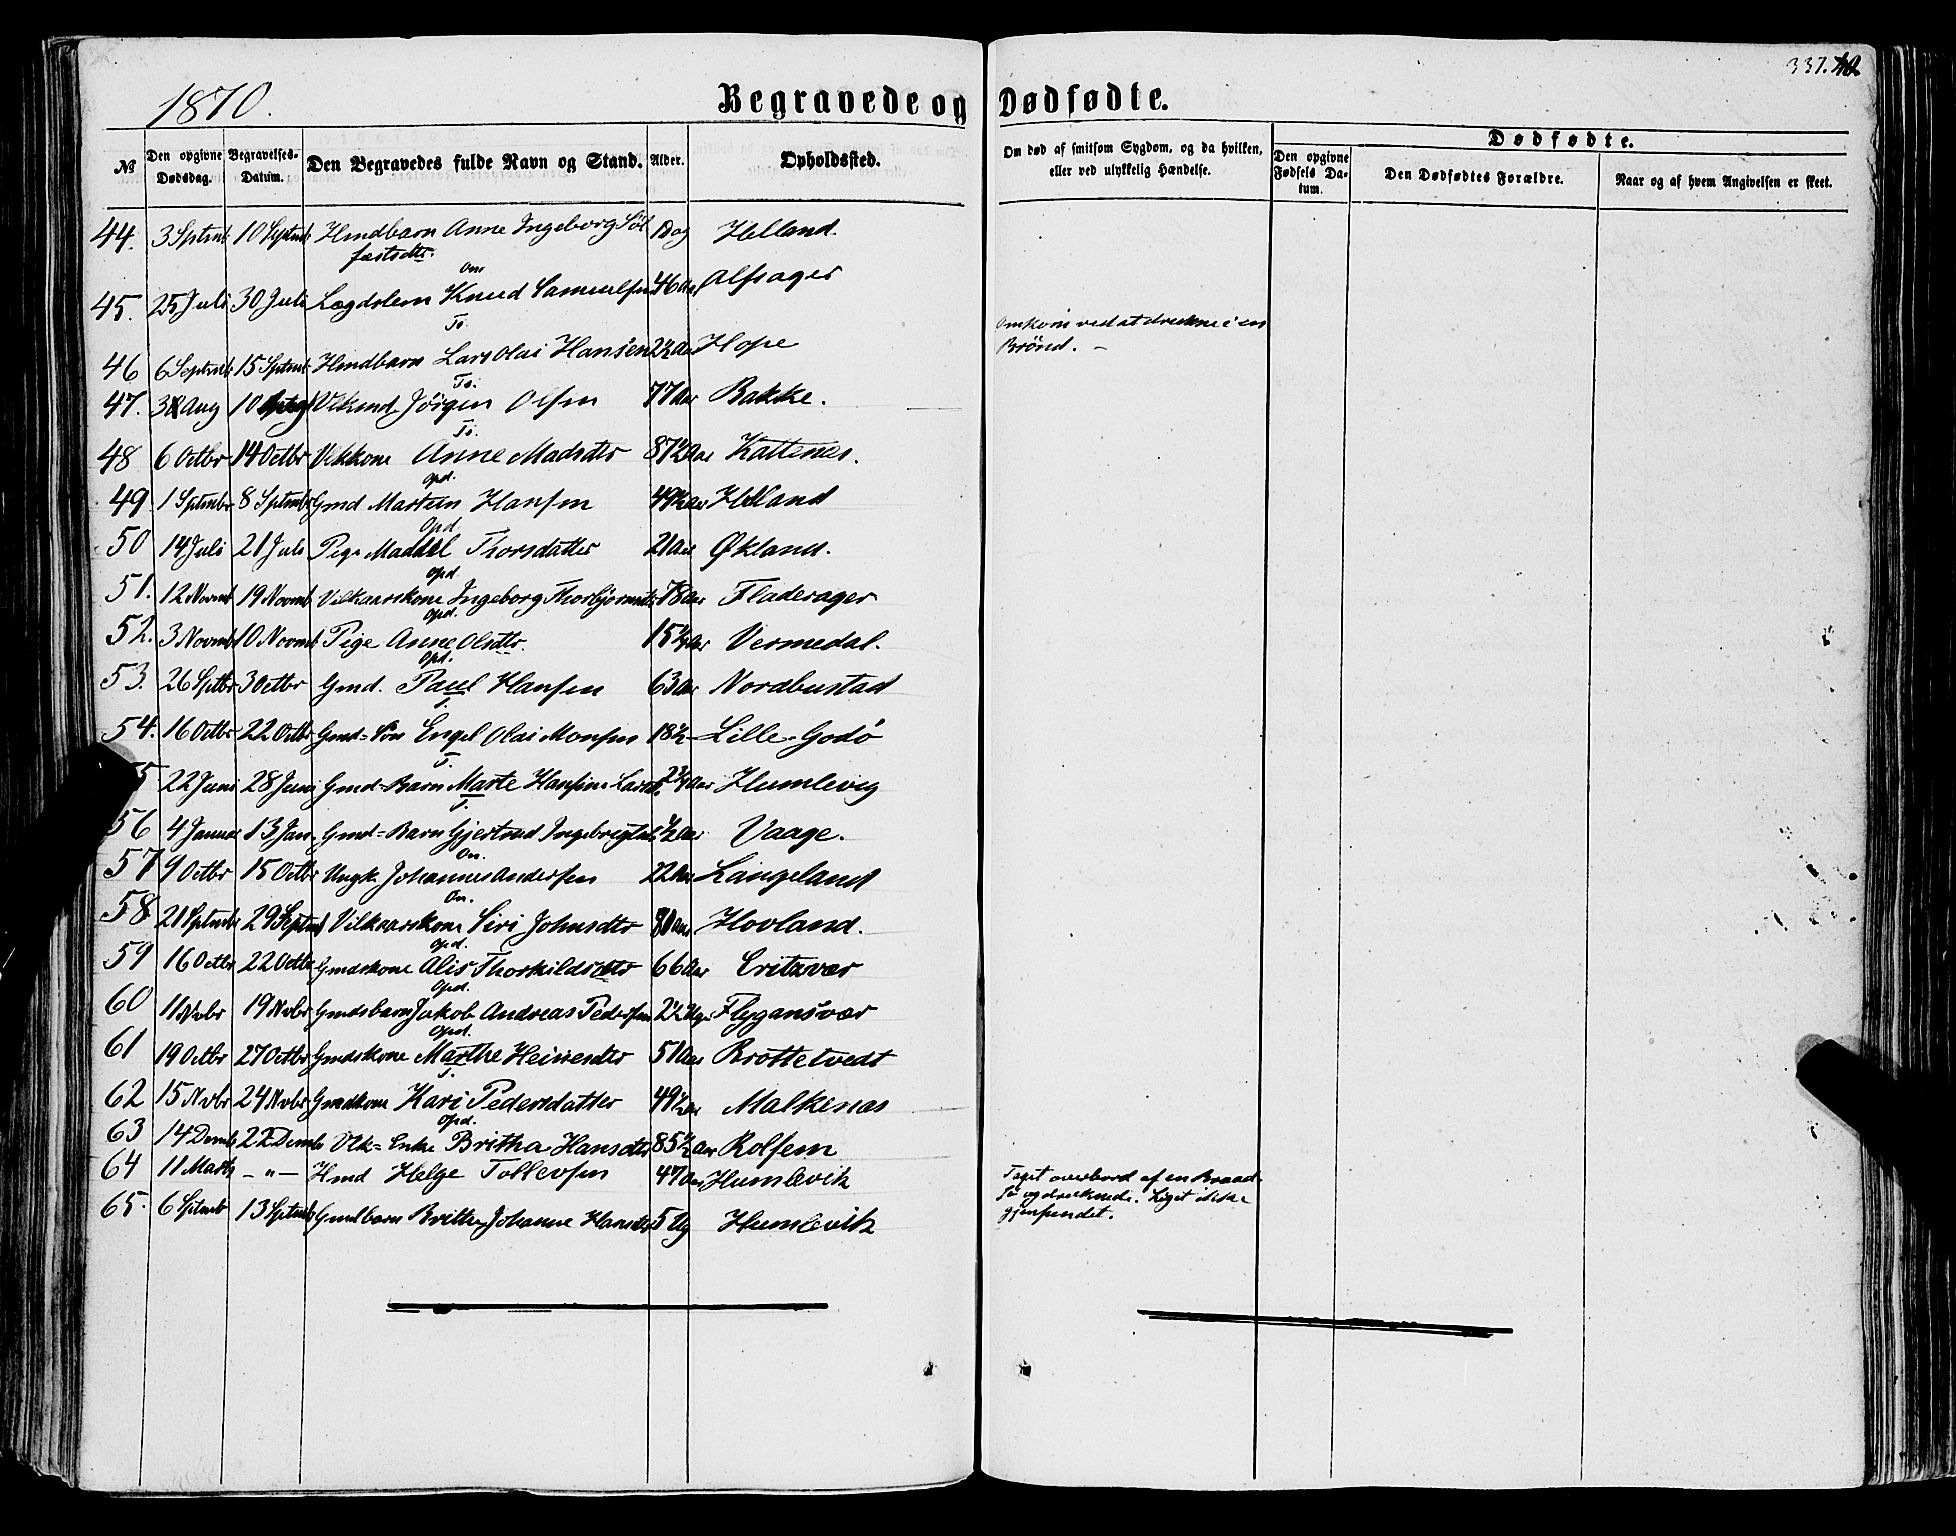 337.
1870.
Begravede og Dødfødte.
№ Den opgivne Dødsdag. Begravelses-Datum. Den Begravedes fulde Navn og Stand. Alder. Opholdssted. Om død af smitsom Sygdom, og da hvilken, eller ved ulykkelig Hændelse. Den opgivne Fødsels Datum. Dødfødte. Den Dødfødtes Forældre. Naar og af hvem Angivelsen er skeet.
44. 3 Septmb 10 Septmb Hmdbarn Anne Ingeborg Söl 1 Dag Helland.
fæstsdtr.
On
45. 25 Juli 30 Juli Lægdslem Knud Samuelsen 46 Aar Alfsager
To.
Omkom ved at drukne i en
Brönd. –
46 6 Septmb 15 Septmb Hmdbarn Lars Olai Hansen 2½ Aar Hope
To.
47. Aug 10 Vikmd Jörgen Olsen 77 Aar Bakke.
To.
48 6 Octbr 14 Octbr Vikkone Anne Madsdtr 87½ Aar Kattenes.
Opd.
49. 1 Septmbr 8 Septmbr Gmd Martin Hansen 49½ Aar Helland
Opd
50 14 Juli 21 Juli Pige Maddel Thorsdatter 21 Aar Økland.
Opd
51. 12 Novmb 19 Novmb Vilkaarskone Ingeborg Thorbjörnsdtr 78 Aar Fladerager
Opd.
52. 3 Novmb 10 Novmb Pige Anne Olsdtr. 15½ Aar Vermedal.
Opd.
53. 26 Septbr 3 Octbr Gmd. Paul Hansen 63 Aar Nordbustad
T.
54. 16 Octbr 22 Octbr Gmd=Sön Engel Olai Monsen 18½ – Lille-Godö
T.
5 22 Juni 28 Juni Gmd=Barn Marte Hansine Larsd. Aar Humlevig
T.
56 4 Januar 13 Jan. Gmd=Barn Gjertrud Ingebrigtsd. ½ Aar Vaage.
On.
57 9 Octbr 15 Octbr Ungk. Johannes Andersen 22 Aar Langeland
On.
58 21 Septmb 29 Septmb Vilkaarskone Siri Johnsdtr Aar Hovland.
Opd.
59 16 Octbr 22 Octbr Gmdskone Alis Thorkildsdtr 66 Aar Eritzvær
Opd.
60 11 Nvbr 19 Nvbr Gmdsbarn Jakob Andreas Pedersen 2½ Uge Flygansvær
Opd.
61 19 Octbr 27 Octbr Gmdskone Marthe Heinesdtr 51 Aar Brottetvedt
T.
62 15 Nvbr 24 Nvbr Gmdkone Kari Pedersdatter 49½ Aar Malkenæs
Opd.
63 14 Decmb 22 Decmb Vlk=Enke Britha Hansdtr 85½ Aar Rolfsem
64 11 Marts – " – Hmd Helge Tollevsen 47 Aar Humlevik
Taget overbord af en Braad-
Sö og druknede. Liget ikke
gjenfundet.
65. 6 Septmb 13 Septmb Gmdbarn Brithe Johanne Hansdtr 5 Ug Humlevik